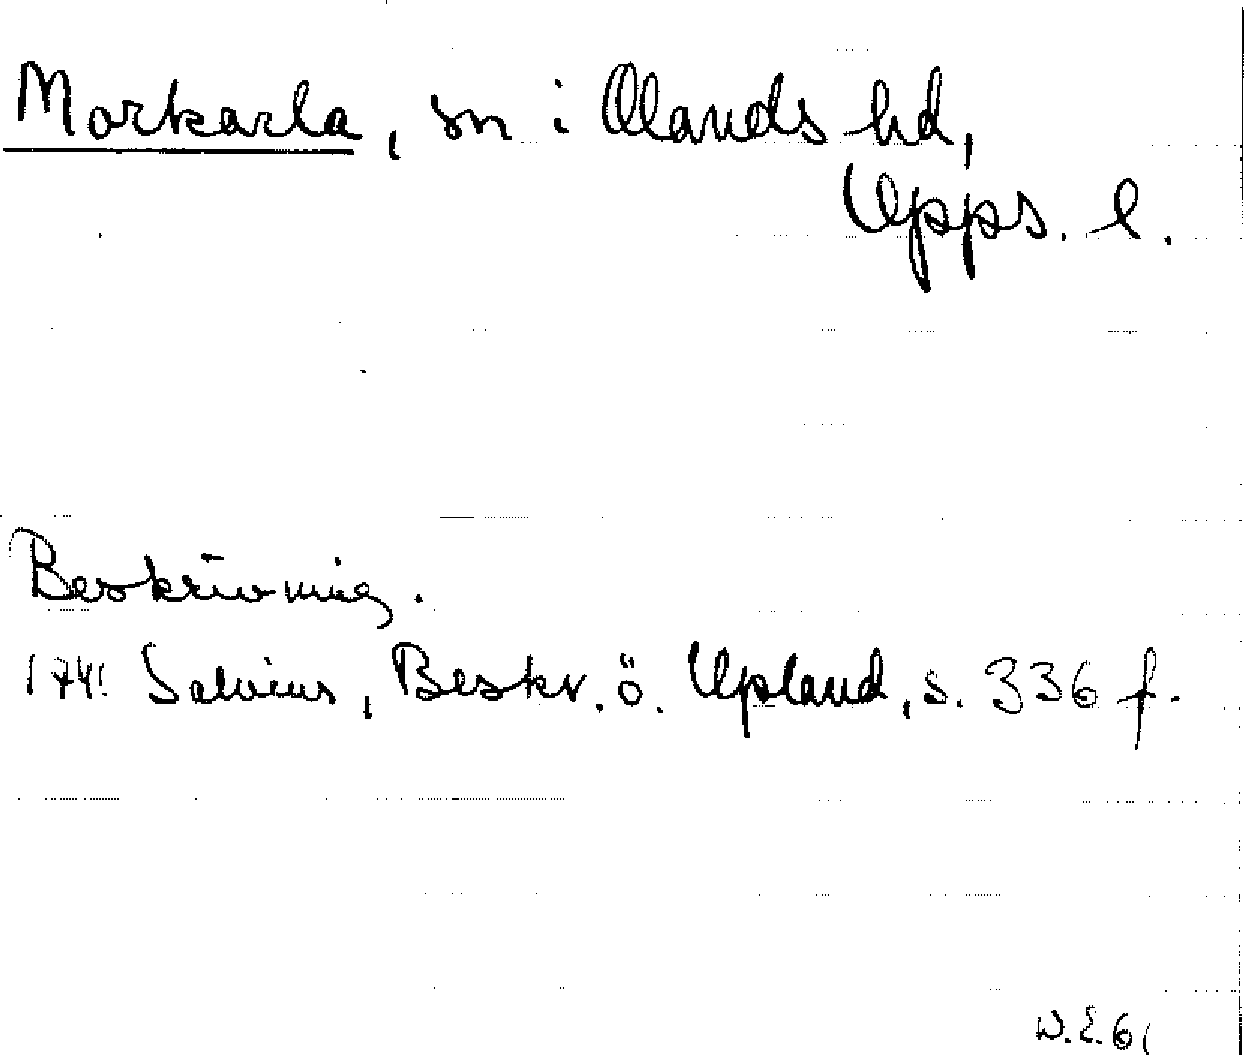 Morkarla, sn i Olands hd,
Upps. l.
Beskrivning.
1741 Salvius, Beskr. ö. Upland, s. 336 f.
W.E. 61